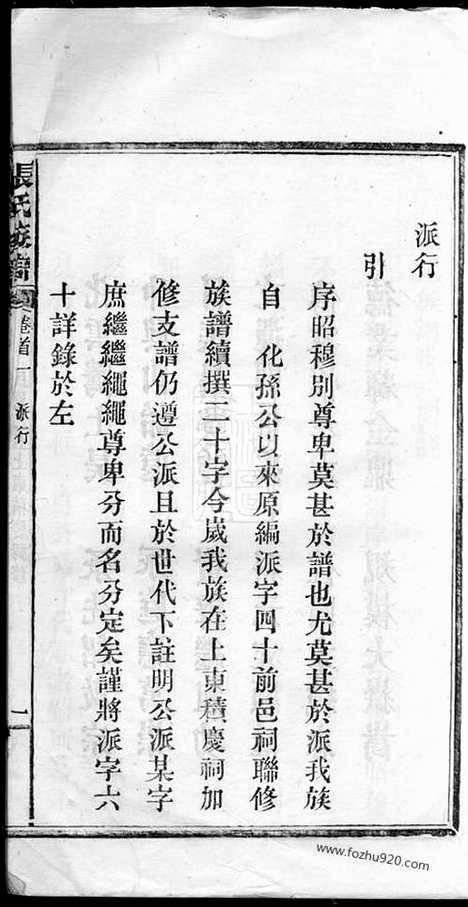 派行
引
序昭穆別尊卑莫甚於譜也尤莫甚於派我族
自 化孫公以來原編派字四十前邑祠聯修
族譜續撰二十字今歲我族在上東積慶祠加
修支譜仍遵公派且於世代下註明公派某字
庶繼繼繩繩尊卑分而名分定矣謹將派字六
十詳錄於左
張氏族譜
卷首一
派行
一
www.fozhu920.com